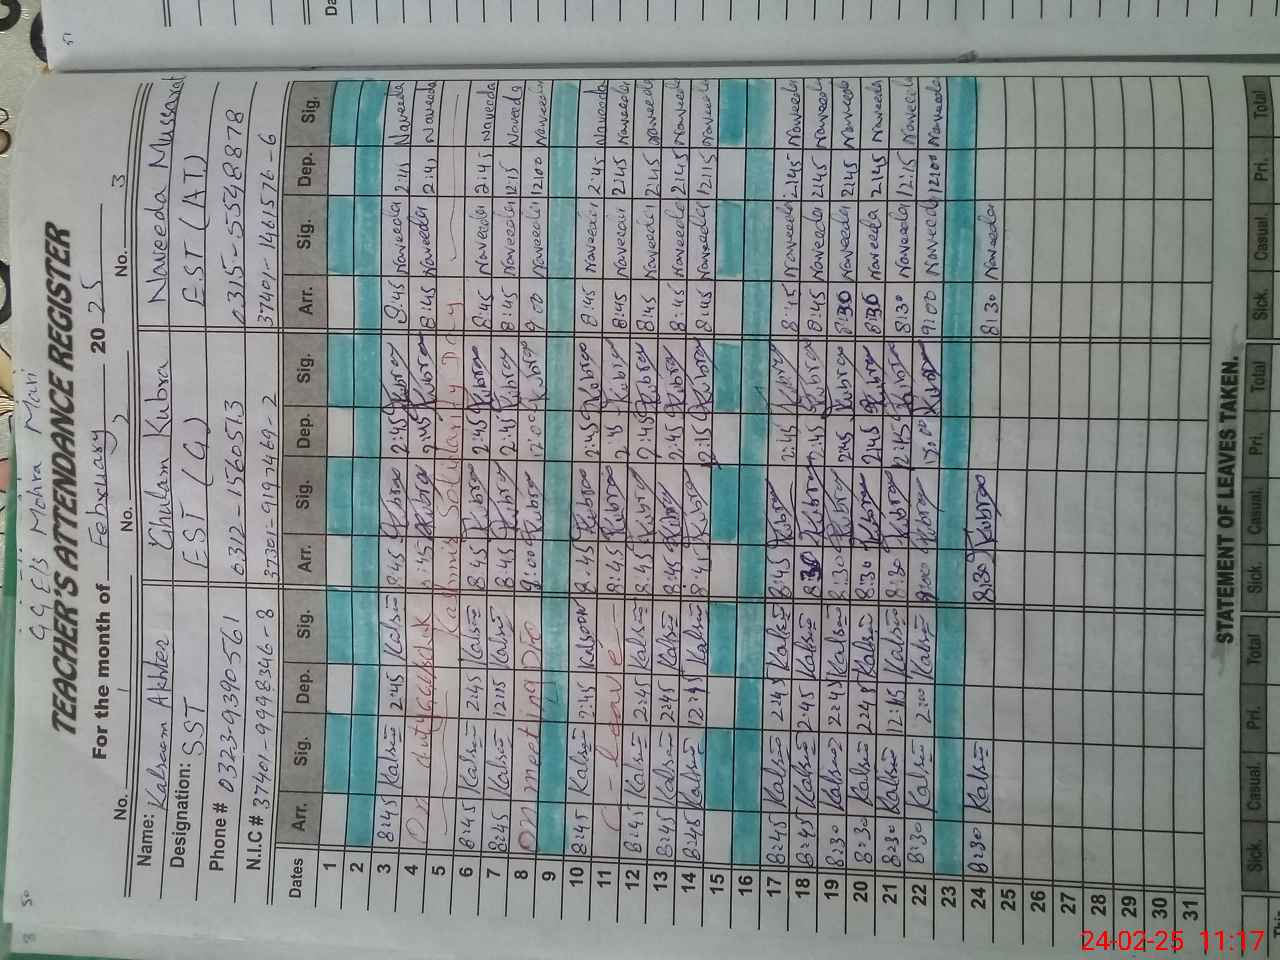 G.G.E/S Mohra Mari
TEACHER'S ATTENDANCE REGISTER
For the month of February 2025
No. 1 No. 2 No. 3
Name: Kalsoom Akhter Ghulam Kubra Naveeda Mussarat
Designation: SST EST (G) EST (AT)
Phone # 0323-9390561 0312-1560513 0315-5548878
N.I.C # 37401-9998346-8 37301-9197469-2 37401-1461576-6
Dates Arr. Sig. Dep. Sig. Arr. Sig. Dep. Sig. Arr. Sig. Dep. Sig.
1
2
3 8:45 Kalsoom 2:45 Kalsoom 8:45 Kubra 2:45 Kubra 8:45 Naveeda 2:45 Naveeda
4 On duty 8:45 Kubra 2:45 Kubra 8:45 Naveeda 2:45 Naveeda
5 Kashmir Solidarity Day
6 8:45 Kalsoom 2:45 Kalsoom 8:45 Kubra 2:45 Kubra 8:45 Naveeda 2:45 Naveeda
7 8:45 Kalsoom 12:15 Kalsoom 8:45 Kubra 2:45 Kubra 8:45 Naveeda 12:15 Naveeda
8 On meeting 9:00 Kubra 12:00 Kubra 9:00 Naveeda 12:00 Naveeda
9
10 8:45 Kalsoom 2:45 Kalsoom 8:45 Kubra 2:45 Kubra 8:45 Naveeda 2:45 Naveeda
11 C-leave 8:45 Kubra 2:45 Kubra 8:45 Naveeda 2:45 Naveeda
12 8:45 Kalsoom 2:45 Kalsoom 8:45 Kubra 2:45 Kubra 8:45 Naveeda 2:45 Naveeda
13 8:45 Kalsoom 2:45 Kalsoom 8:45 Kubra 2:45 Kubra 8:45 Naveeda 2:45 Naveeda
14 8:45 Kalsoom 12:45 Kalsoom 8:45 Kubra 12:15 Kubra 8:45 Naveeda 12:15 Naveeda
15
16
17 8:45 Kalsoom 2:45 Kalsoom 8:45 Kubra 2:45 Kubra 8:15 Naveeda 2:45 Naveeda
18 8:45 Kalsoom 2:45 Kalsoom 8:30 Kubra 2:45 Kubra 8:45 Naveeda 2:45 Naveeda
19 8:30 Kalsoom 2:45 Kalsoom 8:30 Kubra 2:45 Kubra 8:30 Naveeda 2:45 Naveeda
20 8:30 Kalsoom 2:45 Kalsoom 8:30 Kubra 2:45 Kubra 8:30 Naveeda 2:45 Naveeda
21 8:30 Kalsoom 12:15 Kalsoom 8:30 Kubra 12:15 Kubra 8:30 Naveeda 12:15 Naveeda
22 8:30 Kalsoom 2:00 Kalsoom 9:00 Kubra 12:00 Kubra 9:00 Naveeda 12:00 Naveeda
23
24 8:30 Kalsoom 8:30 Kubra 8:30 Naveeda
25
26
27
28
29
30
31
STATEMENT OF LEAVES TAKEN.
Sick. Casual. Pri. Total Sick. Casual. Pri. Total Sick. Casual. Pri. Total
24-02-25 11:17